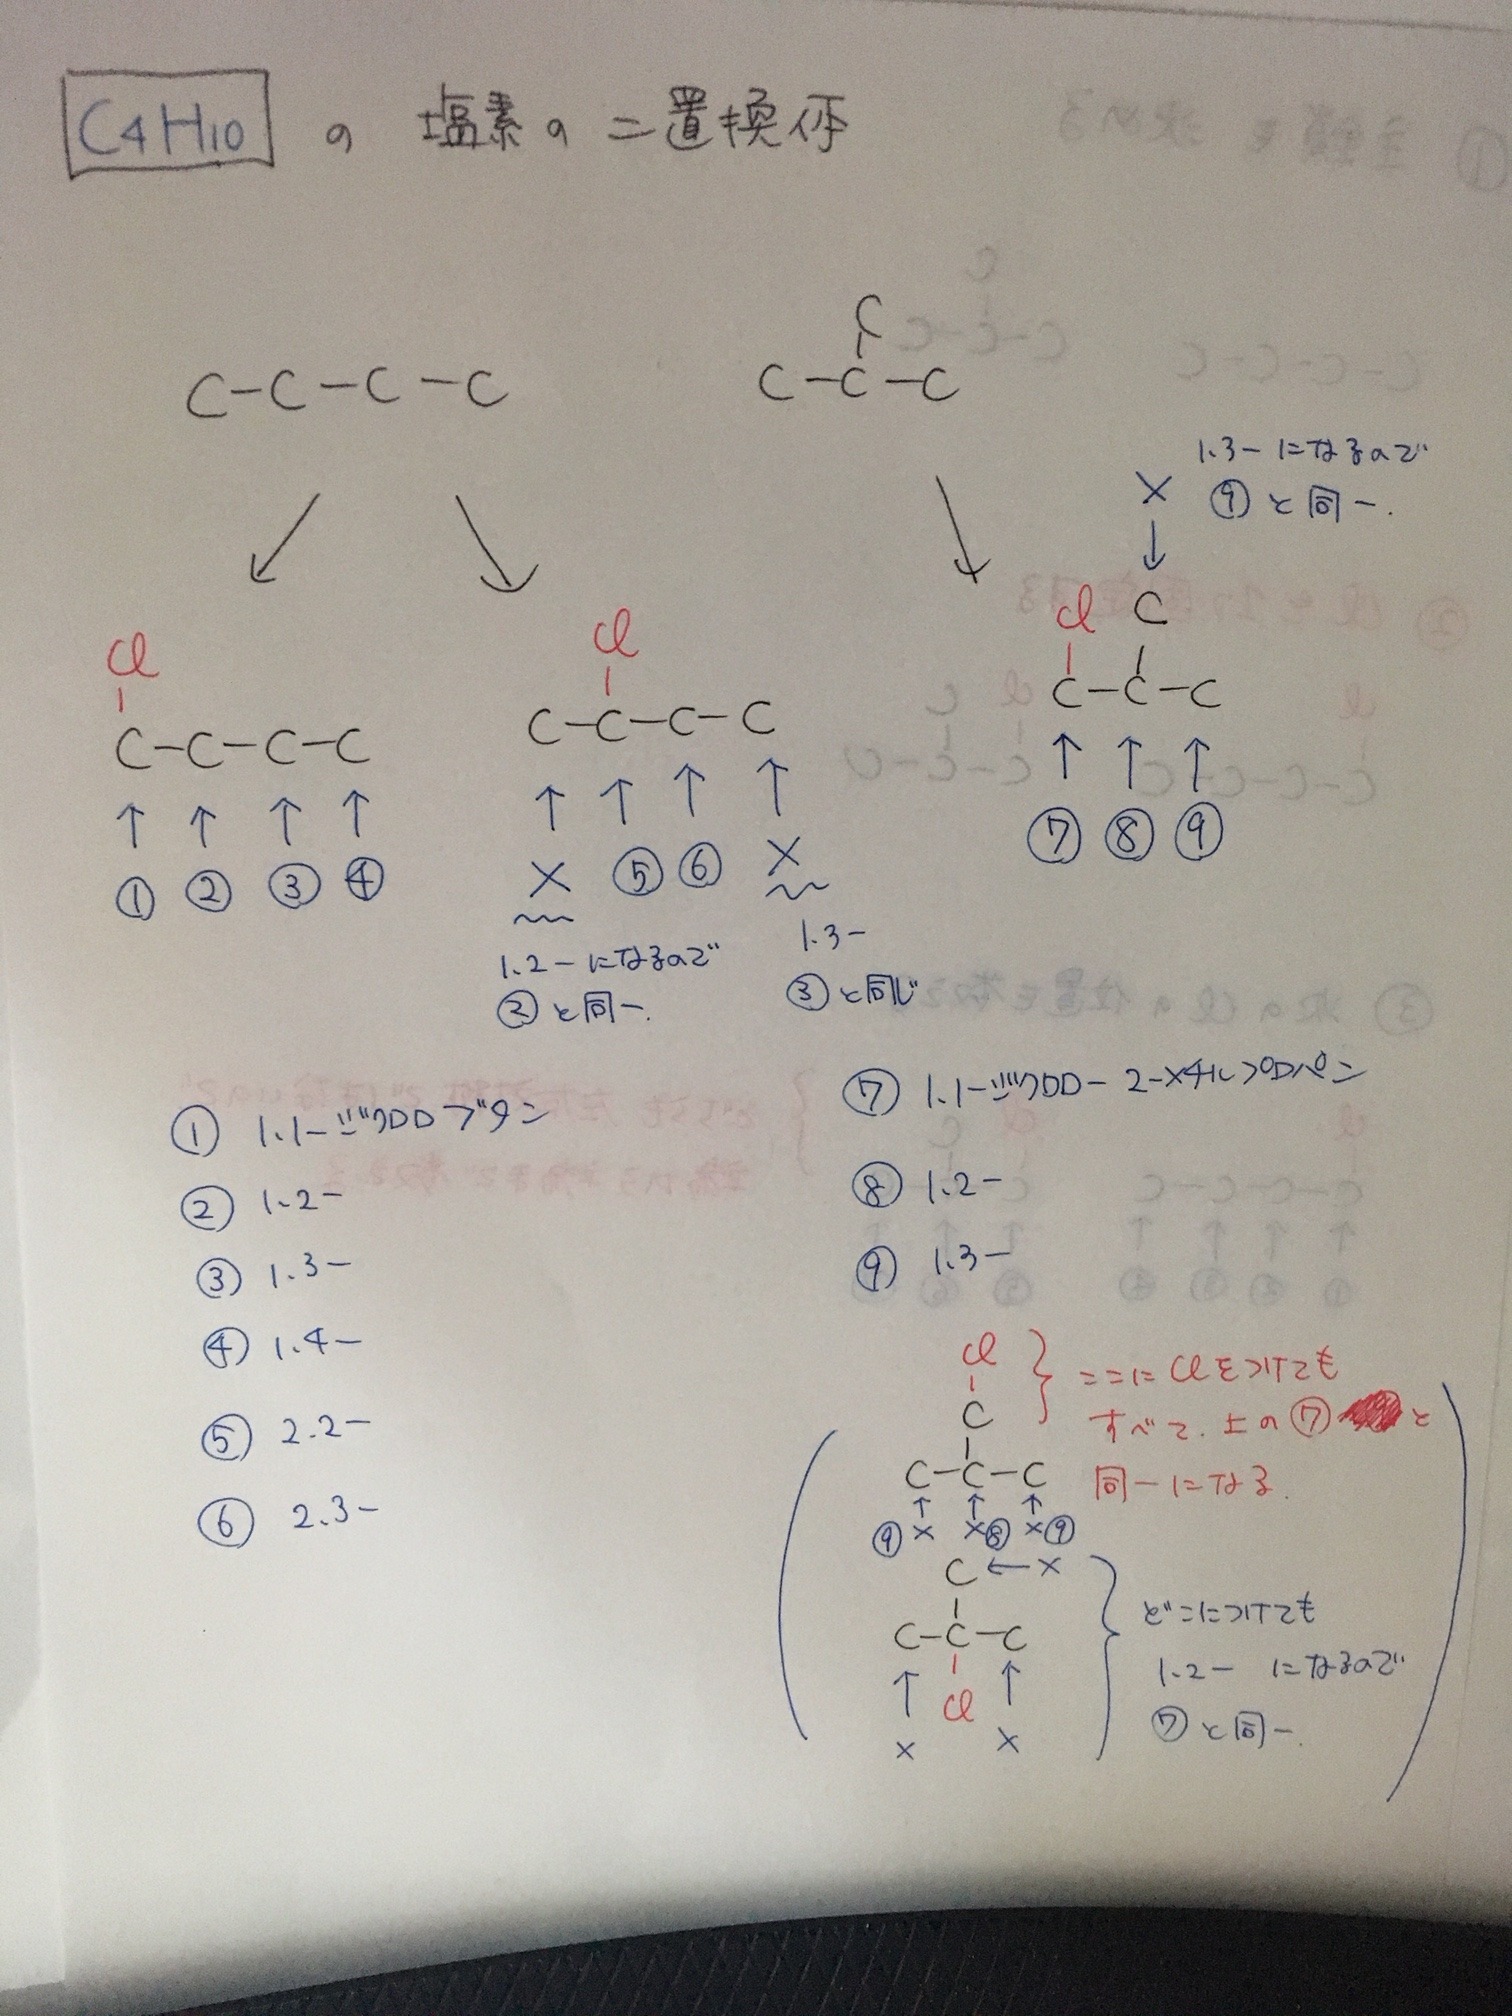 C4H10 の 塩素の 二置換体
C-C-C-C
C
C-C-C
1.3-になるので
× ⑨と同一.
Cl
C-C-C-C
① ② ③ ④
Cl
C-C-C-C
× ⑤ ⑥ ×
1.2-になるので
②と同一.
1.3-
③と同じ
Cl C
C-C-C
⑦ ⑧ ⑨
① 1.1-ジクロロブタン
② 1.2-
③ 1.3-
④ 1.4-
⑤ 2.2-
⑥ 2.3-
⑦ 1.1-ジクロロ-2-メチルプロパン
⑧ 1.2-
⑨ 1.3-
Cl
C
C-C-C
⑨× ×⑧ ×⑨
ここにClをつけても
すべて.上の⑦と
同一になる.
C ←×
C-C-C
Cl
× ×
どこにつけても
1.2- になるので
⑦と同一.